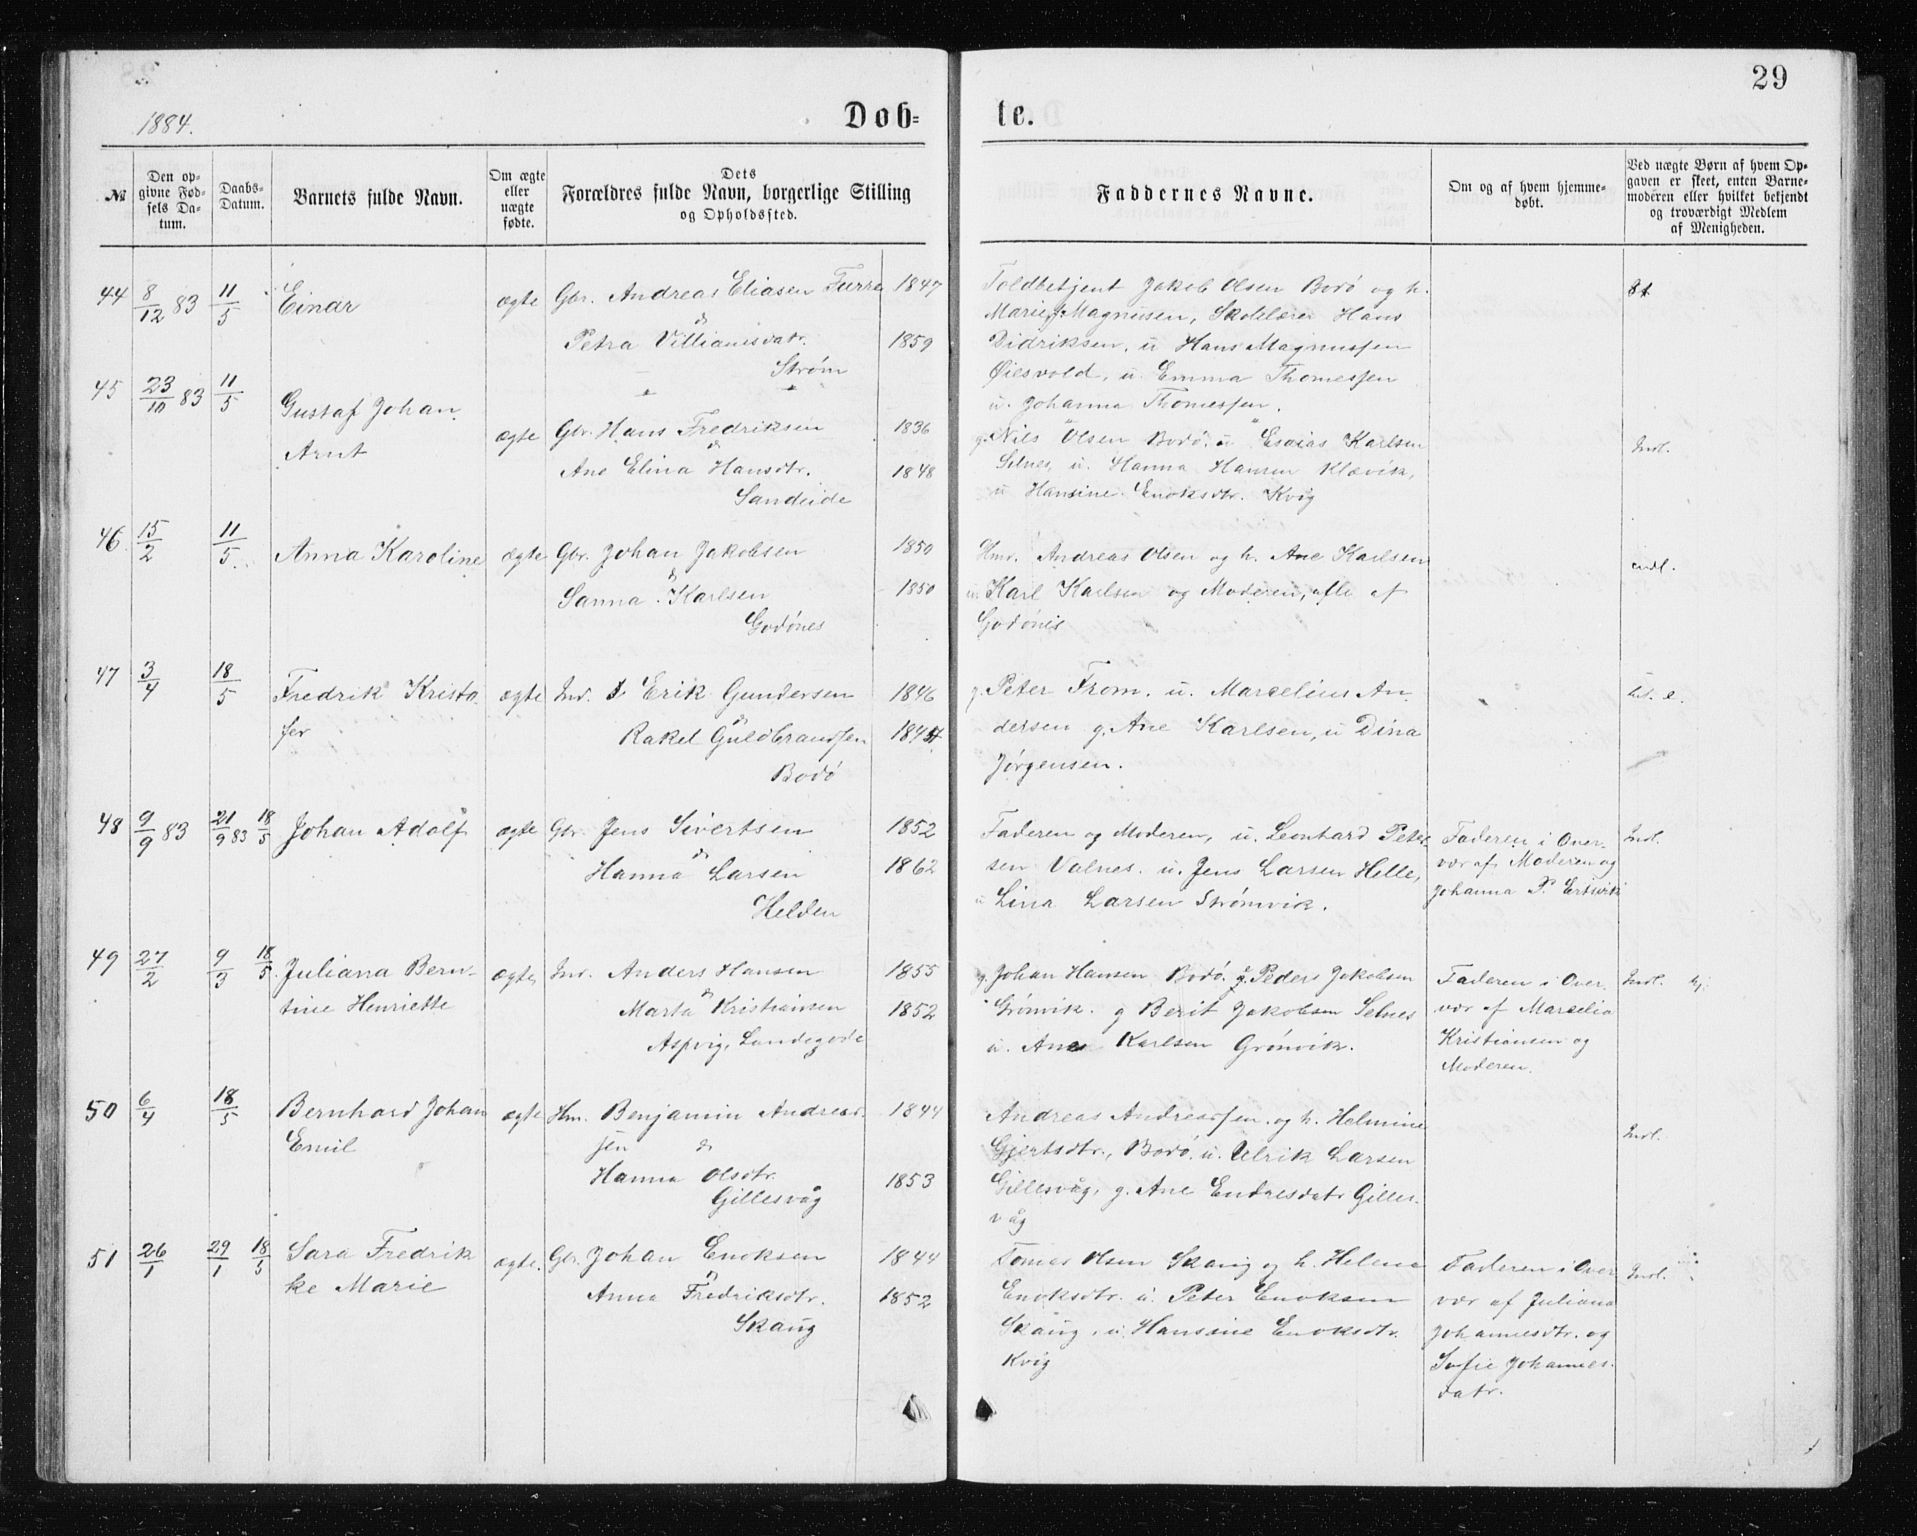 29
1884.
Døb-
te.
№
Den op-
givne Fød-
sels Da-
tum.
Daabs-
Datum.
Barnets fulde Navn.
Om ægte
eller
uægte
fødte.
Dets
Forældres fulde Navn, borgerlige Stilling
og Opholdssted.
Faddernes Navne.
Om og af hvem hjemme-
døbt.
Ved uægte Børn af hvem Op-
gaven er skeet, enten Barne-
moderen eller hvilket bekjendt
og troværdigt Medlem
af Menigheden.
44 8/12 83 11/5 Einar ægte Gbr. Andreas Eliasen Furre 1847
&
Petra Villiamsdatr. 1859
Strøm
Toldbetjent Jakob Olsen Bodø og h.
Marie Magnusen, Skolelærer Hans
Didriksen, u Hans Magnussen
Øiesvold, u. Emma Thomessen
u. Johanna Thomessen.
45 23/10 83 11/5 Gustaf Johan
Arnt
ægte Gbr. Hans Fredriksen 1836
&
Ane Elina Hansdtr. 1848
Sandeide
g. Nils Olsen Bodø. u Esaias Karlsen
Selnes, u. Hanna Hansen Klævik,
u Hansine Enoksdtr. Kvig
Indl.
46 15/2 11/5. Anna Karoline ægte Gbr. Johan Jakobsen 1850
&
Sanna Karlsen 1850
Godønes
Hmd. Andreas Olsen og h. Ane Karlsen
u. Karl Karlsen og Moderen, alle af
Godønes
indl.
47 3/4 18/5 Fredrik Kristo-
fer
ægte Ind. Erik Gundersen 1846
&
Rakel Guldbrandsen
Bodø
g. Peter From. u. Marcelius An-
dersen g. Ane Karlsen, u Dina
Jørgensen.
48 9/9 83 21/9 83 18/5 Johan Adolf ægte Gbr. Jens Sivertsen 1852
&
Hanna Larsen 1862
Helden
Faderen og Moderen, u. Leonhard Peter-
sen Valnes. u. Jens Larsen Helle,
u Lina Larsen Strømvik.
Faderen i Over-
vær af Moderen og
Johanna P. Ertsvik
Indl.
49 27/2 9/3 18/5. Juliana Bern-
tine Henriette
ægte, Ind. Anders Hansen 1855
&
Marta Kristiansen 1852
Aspvig, Landegode
g. Johan Hansen Bodø. g. Peder Jakobsen
Grønvik. g Berit Jakobsen Selnes
u. Ane Karlsen Grønvik.
Faderen i Over-
vær af Marselia
Kristiansen og
Moderen.
Indl.
50 6/4 18/5 Bernhard Johan
Emil
ægte Hm. Benjamin Andreas- 1844
sen &
Hanna Olsdtr. 1853
Gillesvåg
Andreas Andreassen og h. Helmine
Gjertsdtr., Bodø. u. Ulrik Larsen
Gillesvåg, g. Ane Endresdatr Gilles-
våg
Indl.
51 26/1 29/1 18/5 Sara Fredrik
ke Marie
ægte. Gbr. Johan Enoksen 1844
&
Anna Fredriksdtr. 1852
Skaug
Tomas Olsen Skaug og h. Helena
Enoksdtr. u. Peter Enoksen
Skaug, u. Hansine Enoksdtr.
Kvig
Faderen i Over
vær af Juliana
Johannesdtr. og
Sofie Johannes-
datr.
Indl.